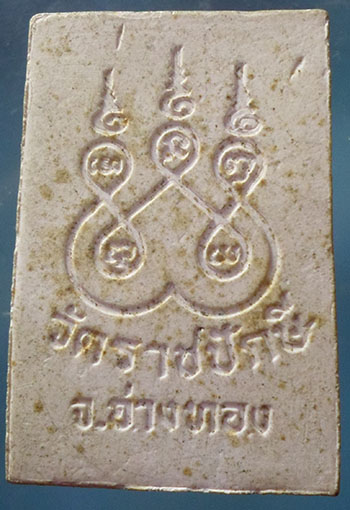 วัดราชปักษี
จ.อ่างทอง